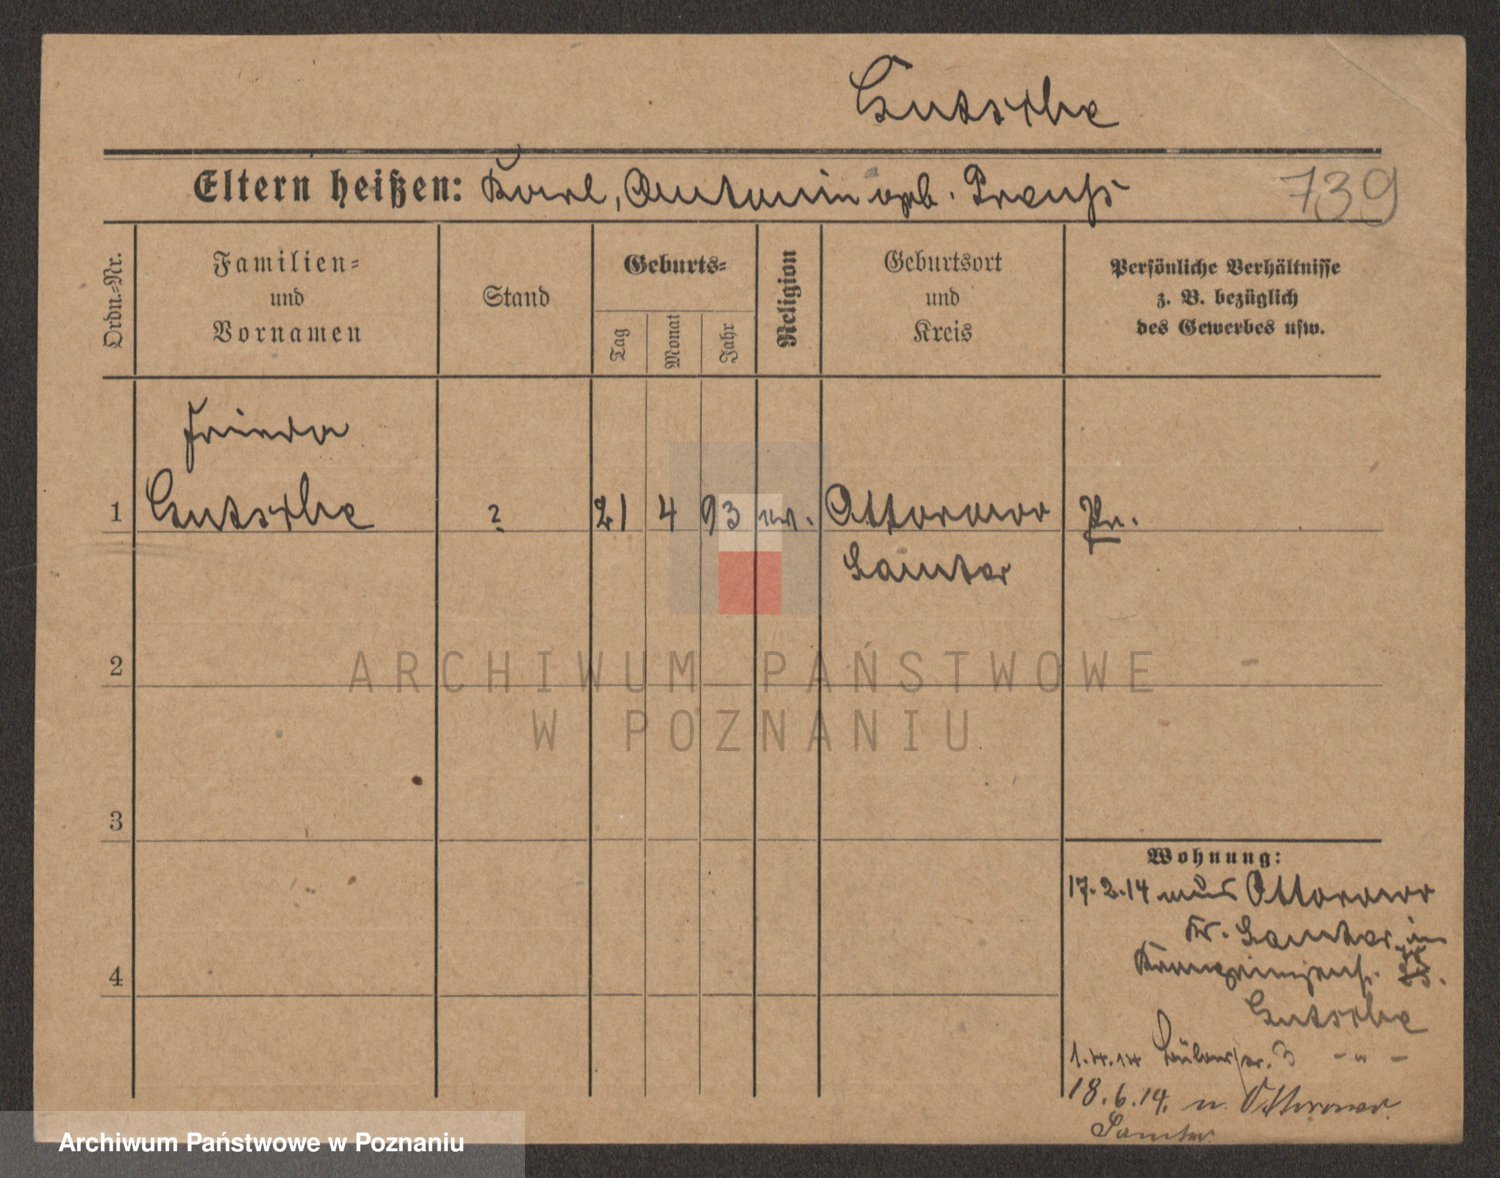 Gutsche
Eltern heißen: Karl, Antonin geb. Preuß
739
Ordn.-Nr.
Familien-
und
Vornamen
Stand
Geburts-
Tag
Monat
Jahr
Religion
Geburtsort
und
Kreis
Persönliche Verhältnisse
z. B. bezüglich
des Gewerbes usw.
Frieda
1 Gutsche ? 21 4 93 ev. Ottorowo Pr.
Samter
ARCHIWUM PAŃSTWOWE
W POZNANIU
2
3
4
Wohnung:
17.2.14 aus Ottorowo
Kr. Samter in
Gutsche
1.4.14 3 - " -
18.6.14. n. Ottorowo
Samter
Archiwum Państwowe w Poznaniu